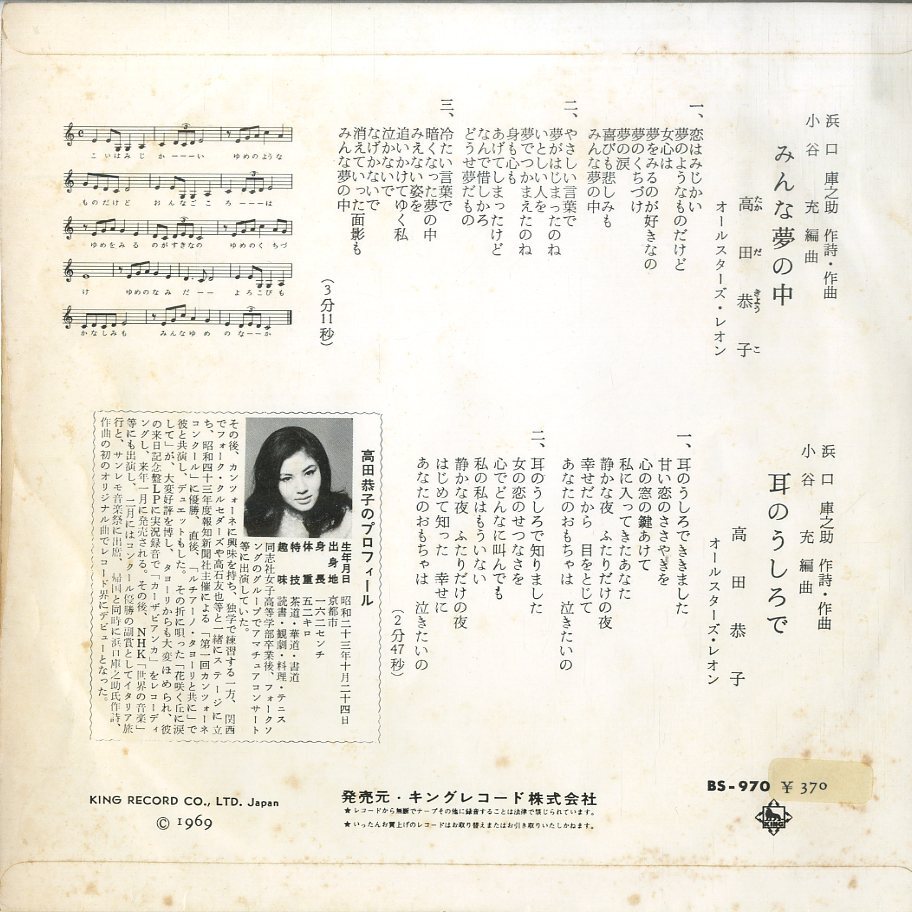 浜口 庫之助 作詩・作曲
小谷 充 編曲
みんな夢の中
高田恭子
たか だ きょう こ
オールスターズ・レオン
一、恋はみじかい
夢のようなものだけど
女心は
夢をみるのが好きなの
夢のくちづけ
夢の涙
喜びも悲しみも
みんな夢の中
二、やさしい言葉で
夢がはじまったのね
いとしい人を
夢でつかまえたのね
身も心も
あげてしまったけど
なんで惜しかろ
どうせ夢だもの
三、冷たい言葉で
暗くなった夢の中
みえない姿を
追いかけてゆく私
泣かないで
なげかないで
消えていった面影も
みんな夢の中
(3分11秒)
こいはみじ かーーーい ゆめのような
ものだけど おんなごこ ろーーーは
ゆめをみる のがすきなの ゆめのくちづ
け ゆめのなみ だーー よろこびも
かなしみも みんなゆめ のなーーか
浜口 庫之助 作詩・作曲
小谷 充 編曲
耳のうしろで
高田恭子
オールスターズ・レオン
一、耳のうしろでききました
甘い恋のささやぎを
心の窓の鍵あけて
私に入ってきたあなた
静かな夜 ふたりだけの夜
幸せだから 目をとじて
あなたのおもちゃは 泣きたいの
二、耳のうしろで知りました
女の恋のせつなさを
心でどんなに叫んでも
私の私はもういない
静かな夜 ふたりだけの夜
はじめて知った 幸せに
あなたのおもちゃは 泣きたいの
(2分47秒)
高田恭子のプロフィール
生年月日 昭和二十三年十月二十四日
出身地 京都市
身長 一六二センチ
体重 五二キロ
特技 茶道・華道・書道
趣味 読書・観劇・料理・テニス
同志社女子高等学部卒業後、フォークソ
ングのグループでアマチュアコンサート
等に出演していた。
その後、カンツォーネに興味を持ち、独学で練習する一方、関西
でフォーク・クルセダーズや高石友也等と一緒にステージに立
ち、昭和四十三年度報知新聞社主催による「第一回カンツォーネ
コンクール」に優勝、直後、「ルチアーノ・タヨーリと共に」で
彼と共演し、デュエットもした。その折に唄った「花咲く丘に涙
して」が、大変好評を博し、タヨーリからも大変ほめられ、彼
の来日記念盤LPに実況録音で「カーザビアンカ」をレコーディ
ングし、来年一月に発売される。その後、NHK「世界の音楽」
等にも出演し、二月にはコンクール優勝の副賞としてイタリア旅
行と、サンレモ音楽祭に出席、帰国と同時に浜口庫之助氏作詩、
作曲の初のオリジナル曲でレコード界にデビューとなった。
KING RECORD CO., LTD. Japan
© 1969
発売元・キングレコード株式会社
★レコードから無断でテープその他に録音することは法律で禁じられています。
★いったんお買上げのレコードはお取り替えまたはお引き取りいたしかねます。
BS-970 ¥370
KING